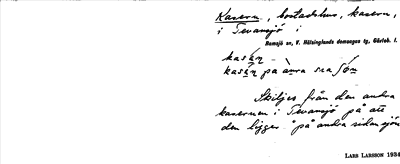 Kasern, bostadshus, kasern,
i Tevansjö i
Ramsjö sn, V. Hälsinglands domsagas tg, Gävleb. l.
kasä́n
kasä́n på àṇra sea
Skiljes från den andra
kasernen i Tevansjö på att
den ligger "på andra sidan sjön
LARS LARSSON 1934